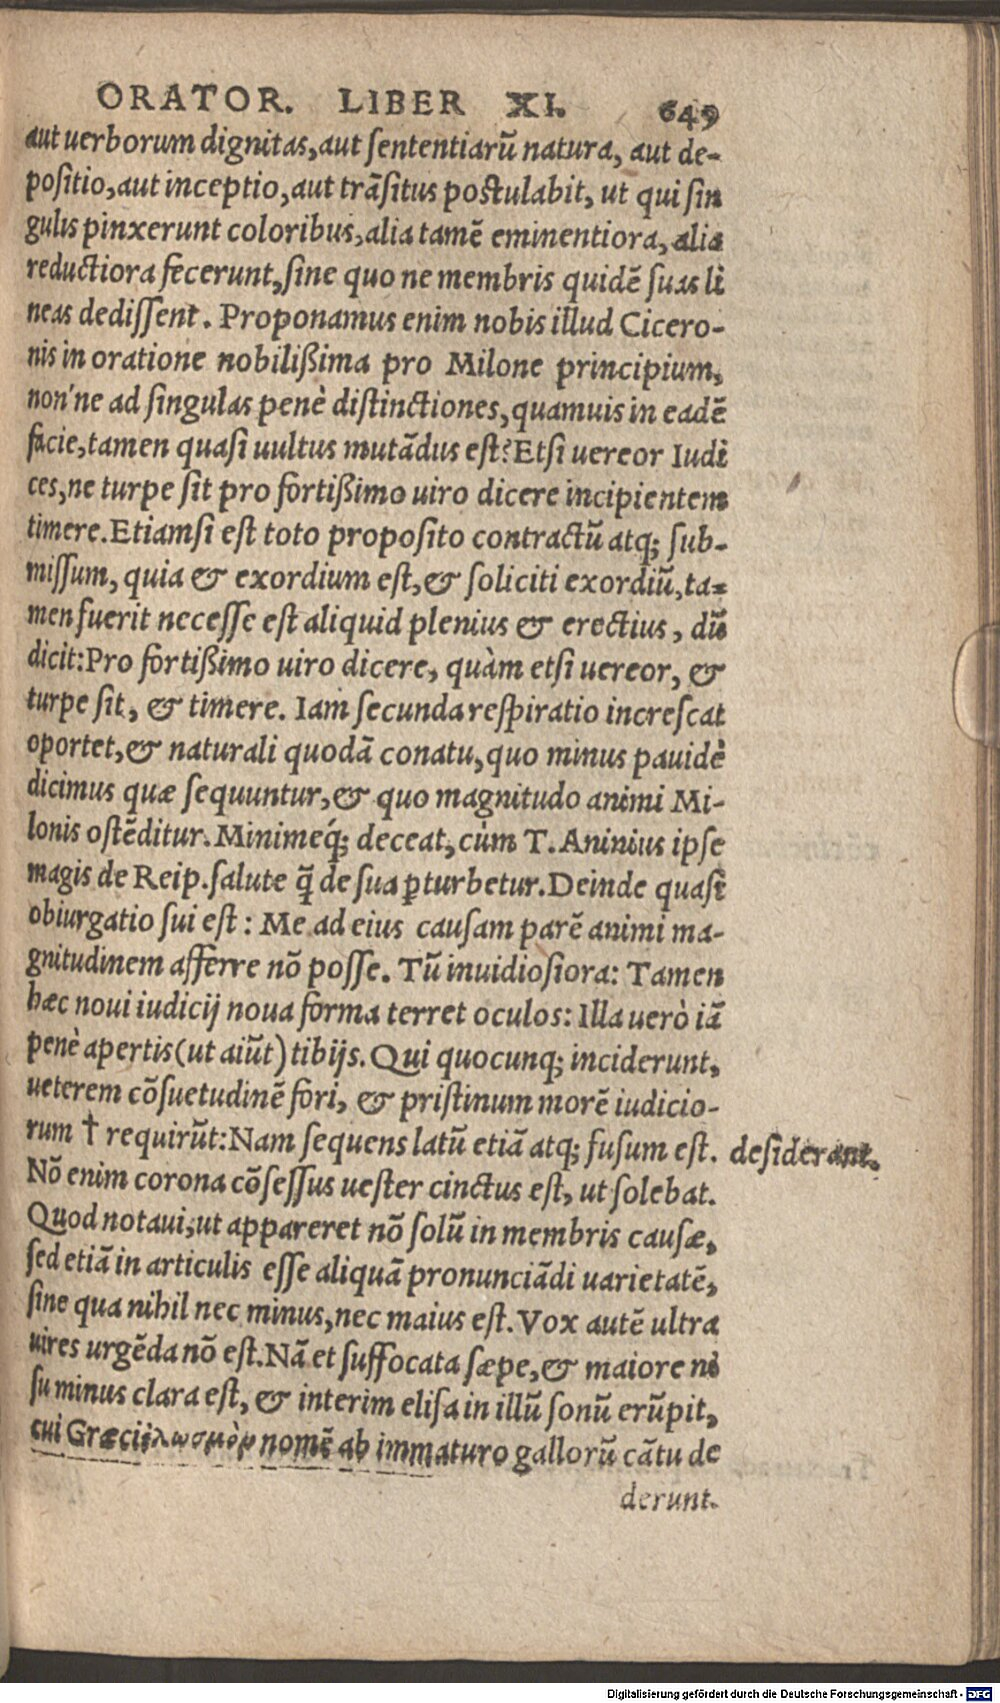 ORATOR. LIBER XI. 649
aut uerborum dignitas, aut sententiarũ natura, aut de-
positio, aut inceptio, aut trãsitus postulabit, ut qui sin
gulis pinxerunt coloribus, alia tamẽ eminentiora, alia
reductiora fecerunt, sine quo ne membris quidẽ suas li
neas dedissent. Proponamus enim nobis illud Cicero-
nis in oratione nobilißima pro Milone principium,
non'ne ad singulas penè distinctiones, quamuis in eadẽ
facie, tamen quasi uultus mutãdus est? Etsi uereor Iudi
ces, ne turpe sit pro fortißimo uiro dicere incipientem
timere. Etiamsi est toto proposito contractũ atq; sub-
missum, quia & exordium est, & soliciti exordiũ, ta-
men fuerit necesse est aliquid plenius & erectius, dũ
dicit: Pro fortißimo uiro dicere, quàm etsi uereor, &
turpe sit, & timere. Iam secunda respiratio increscat
oportet, & naturali quodã conatu, quo minus pauidè
dicimus quæ sequuntur, & quo magnitudo animi Mi-
lonis ostẽditur. Minimeq́; deceat, cùm T. Aninius ipse
magis de Reip. salute q̃ de sua ꝑturbetur. Deinde quasi
obiurgatio sui est: Me ad eius causam parẽ animi ma-
gnitudinem afferre nõ posse. Tũ inuidiosiora: Tamen
hæc noui iudicij noua forma terret oculos: Illa uerò iã
penè apertis (ut aiũt) tibijs. Qui quocunq; inciderunt,
ueterem cõsuetudinẽ fori, & pristinum morẽ iudicio-
rum † requirũt: Nam sequens latũ etiã atq; fusum est. desiderant.
Nõ enim corona cõsessus uester cinctus est, ut solebat.
Quod notaui, ut appareret nõ solũ in membris causæ,
sed etiã in articulis esse aliquã pronunciãdi uarietatẽ,
sine qua nihil nec minus, nec maius est. Vox autẽ ultra
uires urgẽda nõ est. Nã et suffocata sæpe, & maiore ni
su minus clara est, & interim elisa in illũ sonũ erũpit,
cui Græci nomẽ ab immaturo gallorũ cãtu de
derunt.
Digitalisierung gefördert durch die Deutsche Forschungsgemeinschaft - DFG